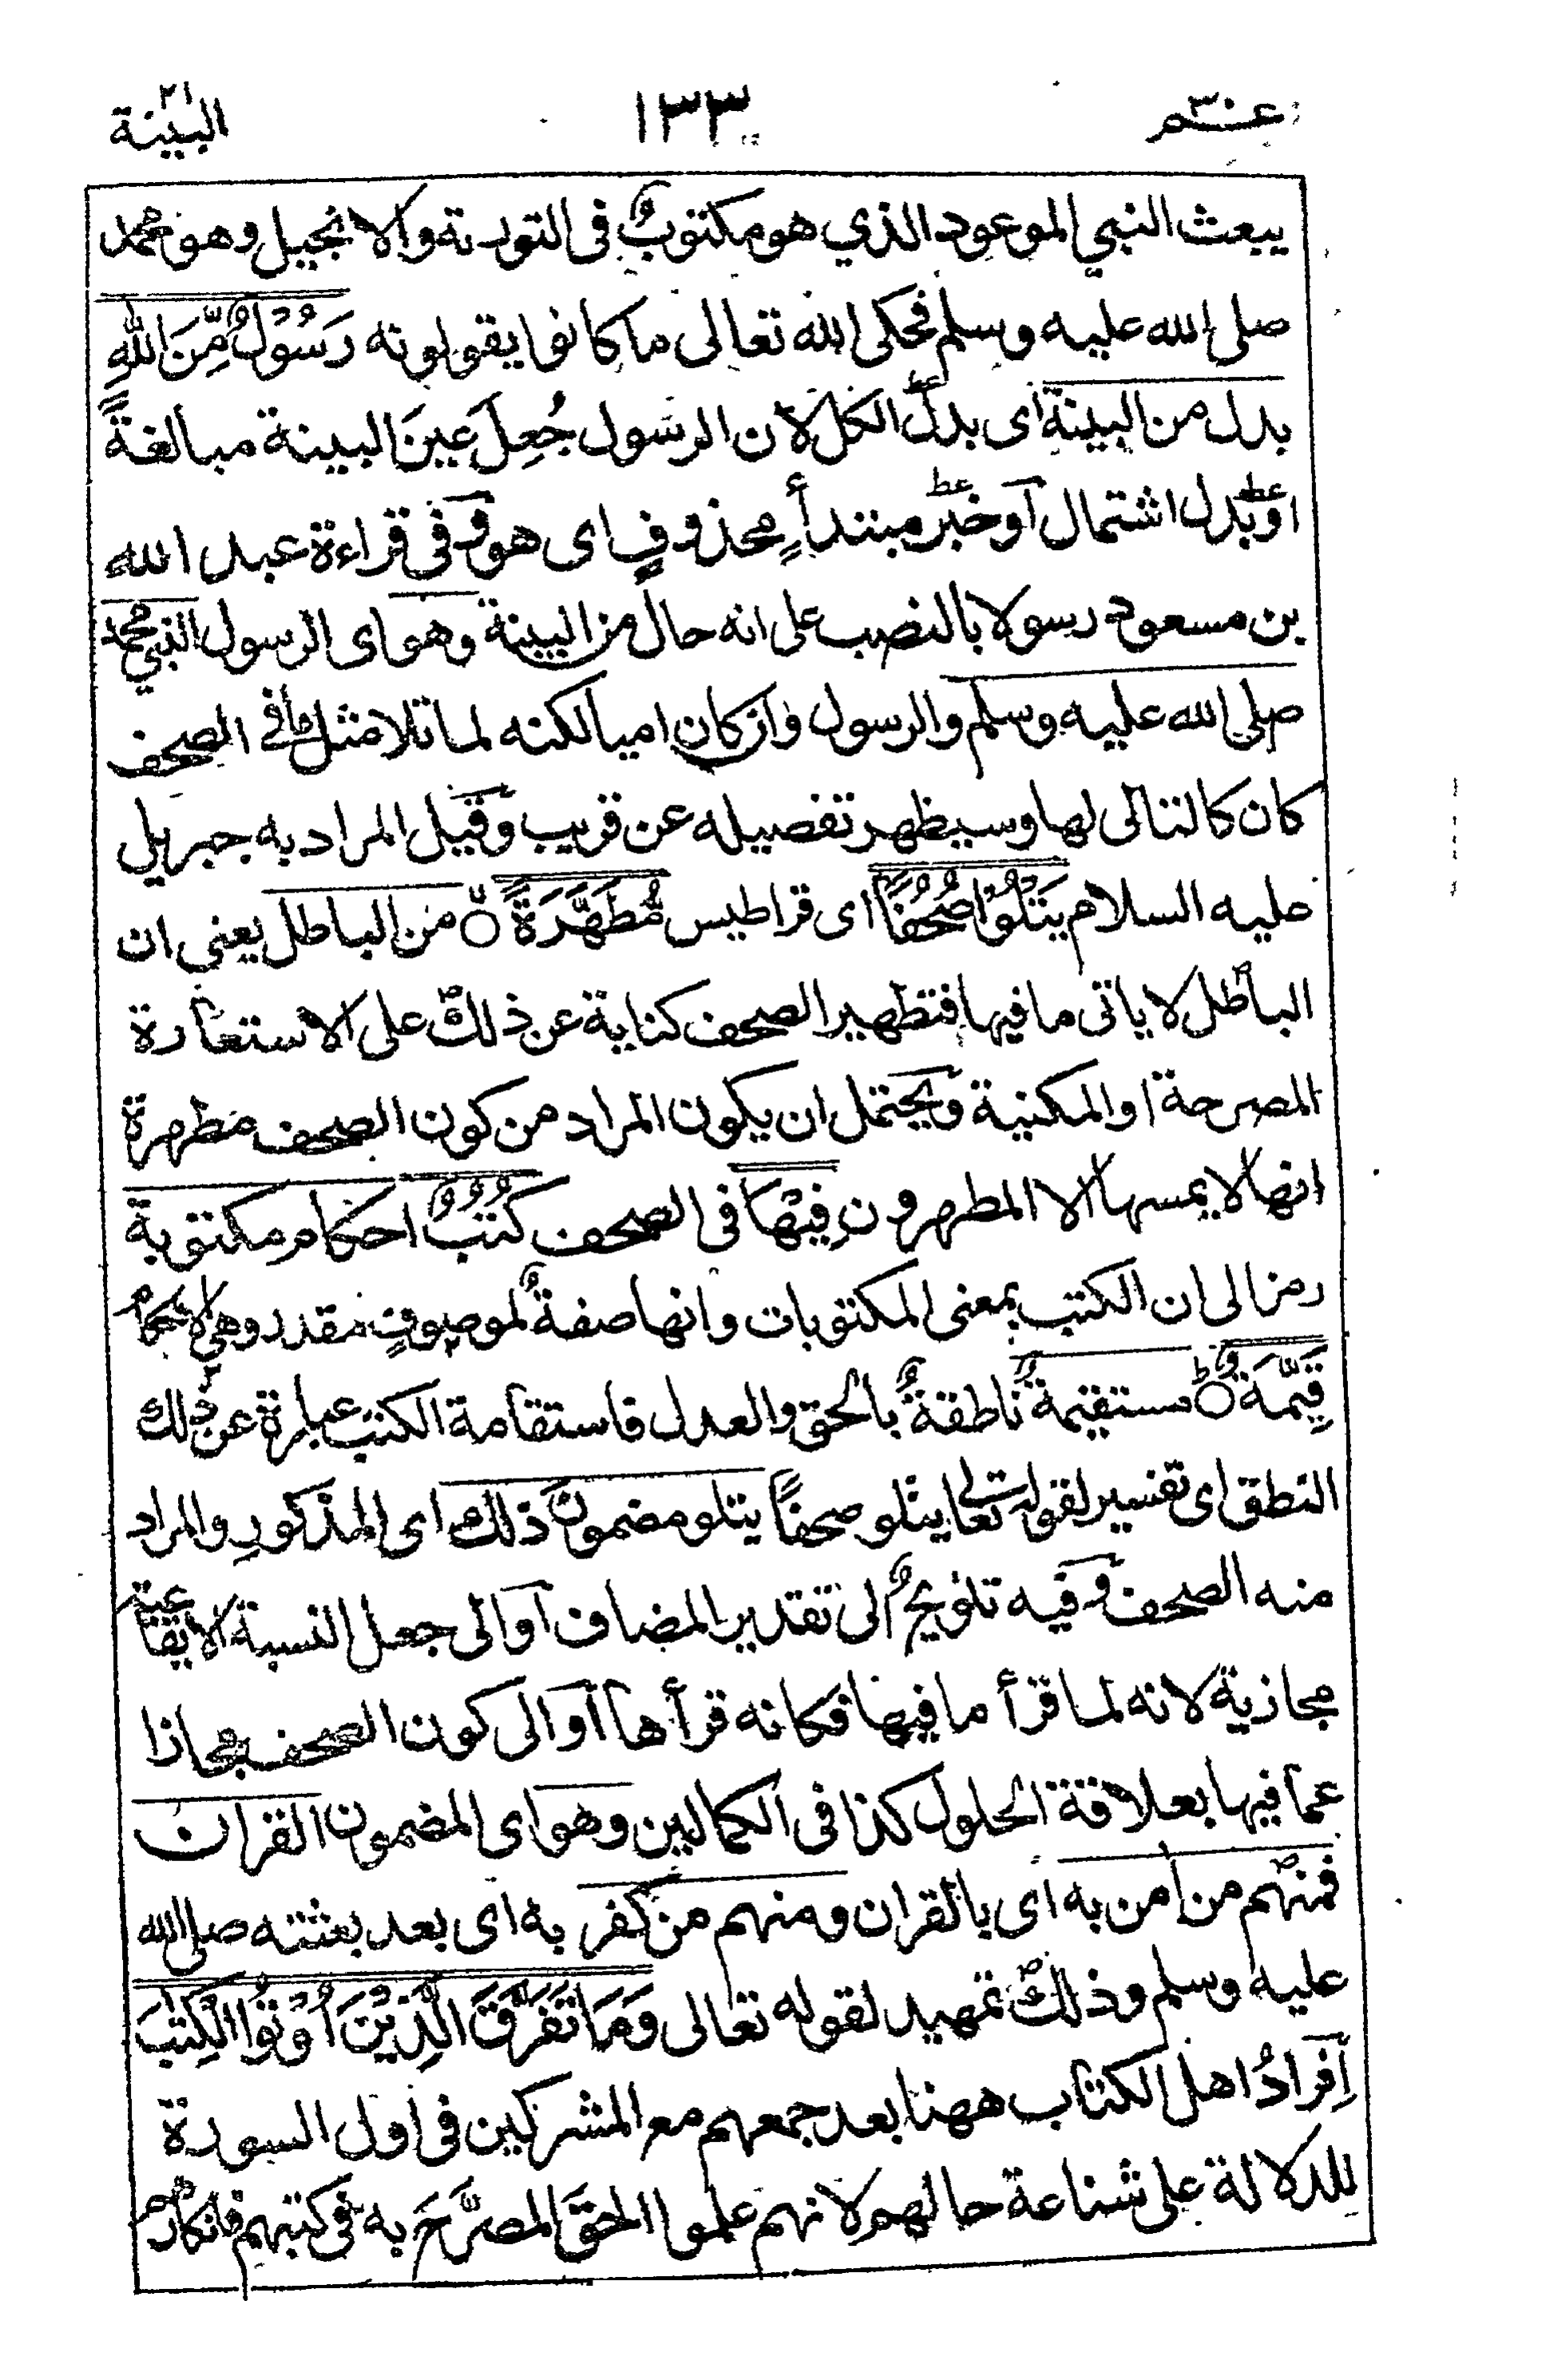 عـم ٣٠ ١٣٣ البينة ٢١
يبعث النبي الموعود الذي هو مكتوبٌ فى التورىة والانجيل وهو محمد
صلى الله عليه وسلم فحكى الله تعالى ما كانوا يقولونه رَسُوْلٌ مِّنَ اللّٰهِ
بدل من البينة اى بدل الكل لان الرسول جُعِلَ عَينَ البينة مبالغةً
او بدل اشتمال آو خبر مبتدأٍ محذوفٍ اى هو وفى قراءة عبد الله
بن مسعود رسولا بالنصب على انه حال من البينة وهو اى الرسول النبي محمد
صلى الله عليه وسلم والرسول وان كان اميا لكنه لما تلا مثل ما فى الصحف
كان كالتالى لها وسيظهر تفصيله عن قريب وقيل المراد به جبريل
عليه السلام يَتْلُوْا صُحُفًا اى قراطيس مُّطَهَّرَةً ۙ من الباطل يعنى ان
الباطل لا ياتى ما فيها فتطهير الصحف كناية عن ذلك على الاستعارة
المصرحة او المكنية ويحتمل ان يكون المراد من كون الصحف مطهرة
انها لا يمسها الا المطهرون فِيْهَا فى الصحف كُتُبٌ احكام مكتوبة
رمز الى ان الكتب بمعنى المكتوبات وانها صفةٌ لموصوفٍ مقدر وهى الاحكام
قَيِّمَةٌ ؕ مستقيمة ناطقةٌ بالحق والعدل فاستقامة الكتب عبارة عن ذلك
النطق اى تفسير لقوله تعالى يتلو صحفاً يتلو مضمون ذلك اى المذكورِ والمراد
منه الصحف وفيه تلويحٌ الى تقدير المضاف آو الى جعل النسبة الايقاعية
مجازية لانه لما قرأ ما فيها فكانه قرأها آو الى كون الصحف مجازا
عما فيها بعلاقة الحلول كذا فى الكمالين وهو اى المضمون القران
فمنهم من امن به اى بالقران ومنهم من كفر به اى بعد بعثته صلى الله
عليه وسلم وذلك تمهيد لقوله تعالى وَمَا تَفَرَّقَ الَّذِيْنَ اُوْتُوا الْكِتٰبَ
اِفرادُ اهل الكتاب ههنا بعد جمعهم مع المشركين فى اول السورة
للدلالة على شناعة حالهم لانهم علموا الحقَّ المصرَّحَ به فى كتبهم فانكارهم